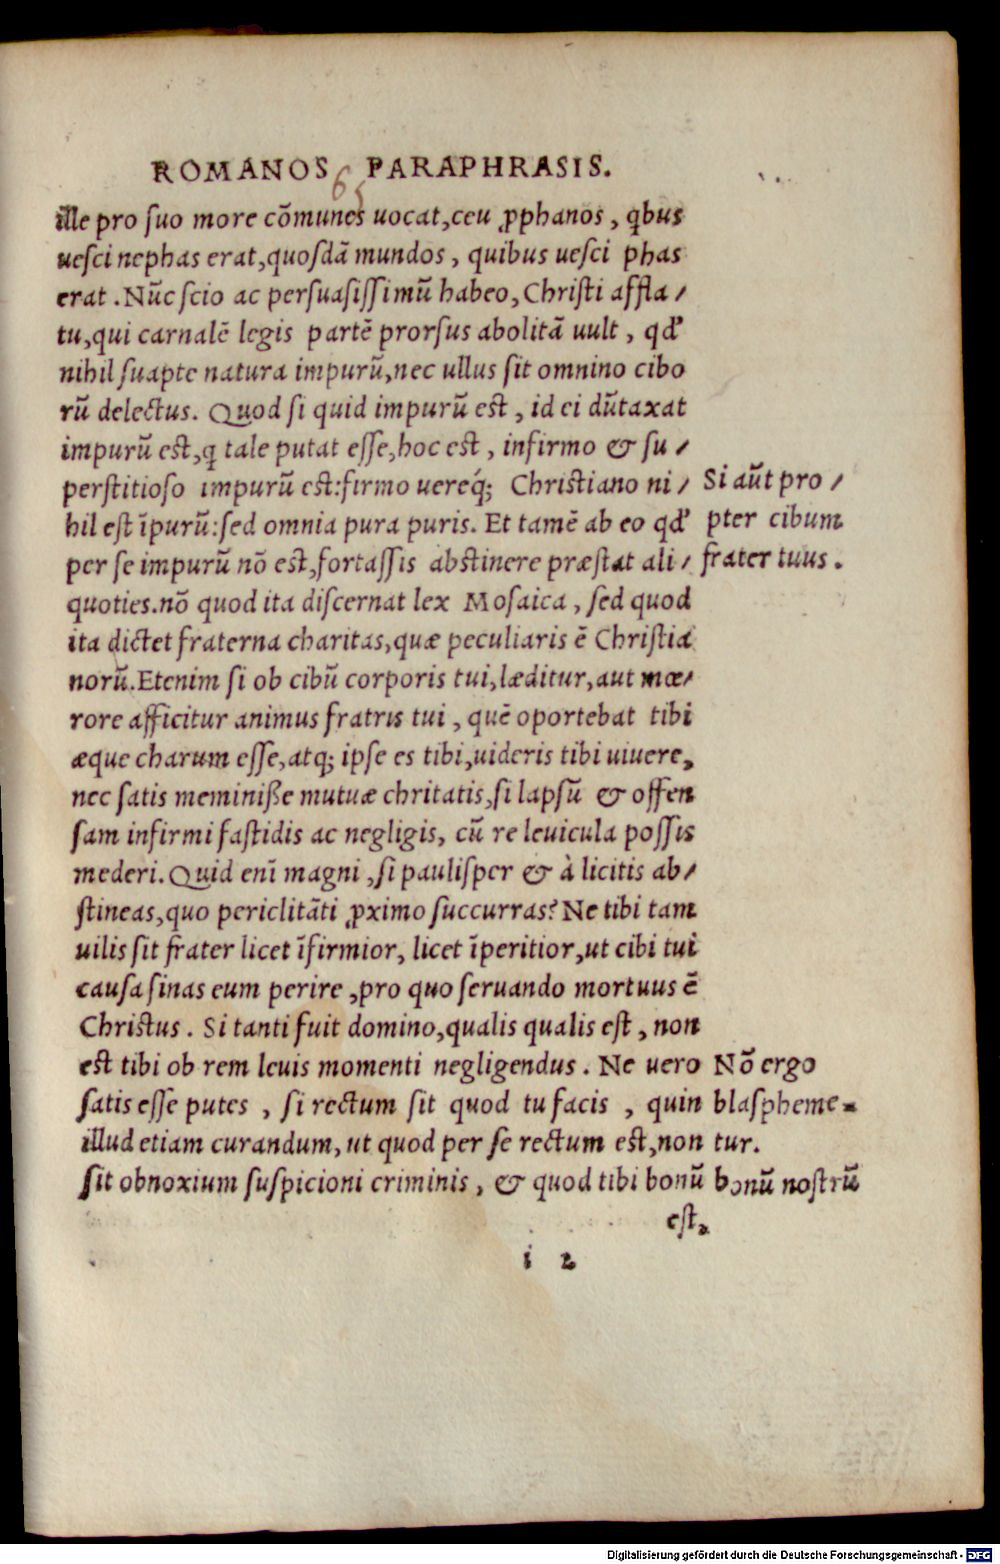 ROMANOS PARAPHRASIS.
65
ille pro ſuo more cōmunes uocat,ceu ꝓphanos, qbus
ueſci nephas erat,quoſdā mundos, quibus ueſci phas
erat. Nūc ſcio ac perſuaſiſſimū habeo, Chriſti affla/
tu,qui carnalē legis partē prorſus abolitā uult, qđ
nihil ſuapte natura impurū,nec ullus ſit omnino cibo
rū delectus. Quod ſi quid impurū eſt, id ei dūtaxat
impurū eſt,q tale putat eſſe,hoc eſt, infirmo & ſu/
perſtitioſo impurū eſt:firmo uereq́; Chriſtiano ni/
hil eſt īpurū:ſed omnia pura puris. Et tamē ab eo qđ
per ſe impurū nō eſt,fortaſſis abſtinere præſtat ali/
quoties.nō quod ita diſcernat lex Moſaica, ſed quod
ita dictet fraterna charitas,quæ peculiaris ē Chriſtia
norū.Etenim ſi ob cibū corporis tui,læditur,aut mœ/
rore afficitur animus fratris tui, quē oportebat tibi
æque charum eſſe,atq; ipſe es tibi,uideris tibi uiuere,
nec ſatis meminiße mutuæ chritatis,ſi lapſū & offen
ſam infirmi faſtidis ac negligis, cū re leuicula poſſis
mederi. Quid enī magni, ſi pauliſper & à licitis ab/
ſtineas,quo periclitāti ꝓximo ſuccurras? Ne tibi tam
uilis ſit frater licet īfirmior, licet īperitior,ut cibi tui
cauſa ſinas eum perire, pro quo ſeruando mortuus ē
Chriſtus. Si tanti fuit domino,qualis qualis eſt, non
eſt tibi ob rem leuis momenti negligendus. Ne uero
ſatis eſſe putes, ſi rectum ſit quod tu facis, quin
illud etiam curandum, ut quod per ſe rectum eſt,non
ſit obnoxium ſuſpicioni criminis, & quod tibi bonū
Si aūt pro/
pter cibum
frater tuus.
Nō ergo
blaſpheme-
tur.
bonū noſtrū
eſt,
i 2
Digitalisierung gefördert durch die Deutsche Forschungsgemeinschaft - DFG